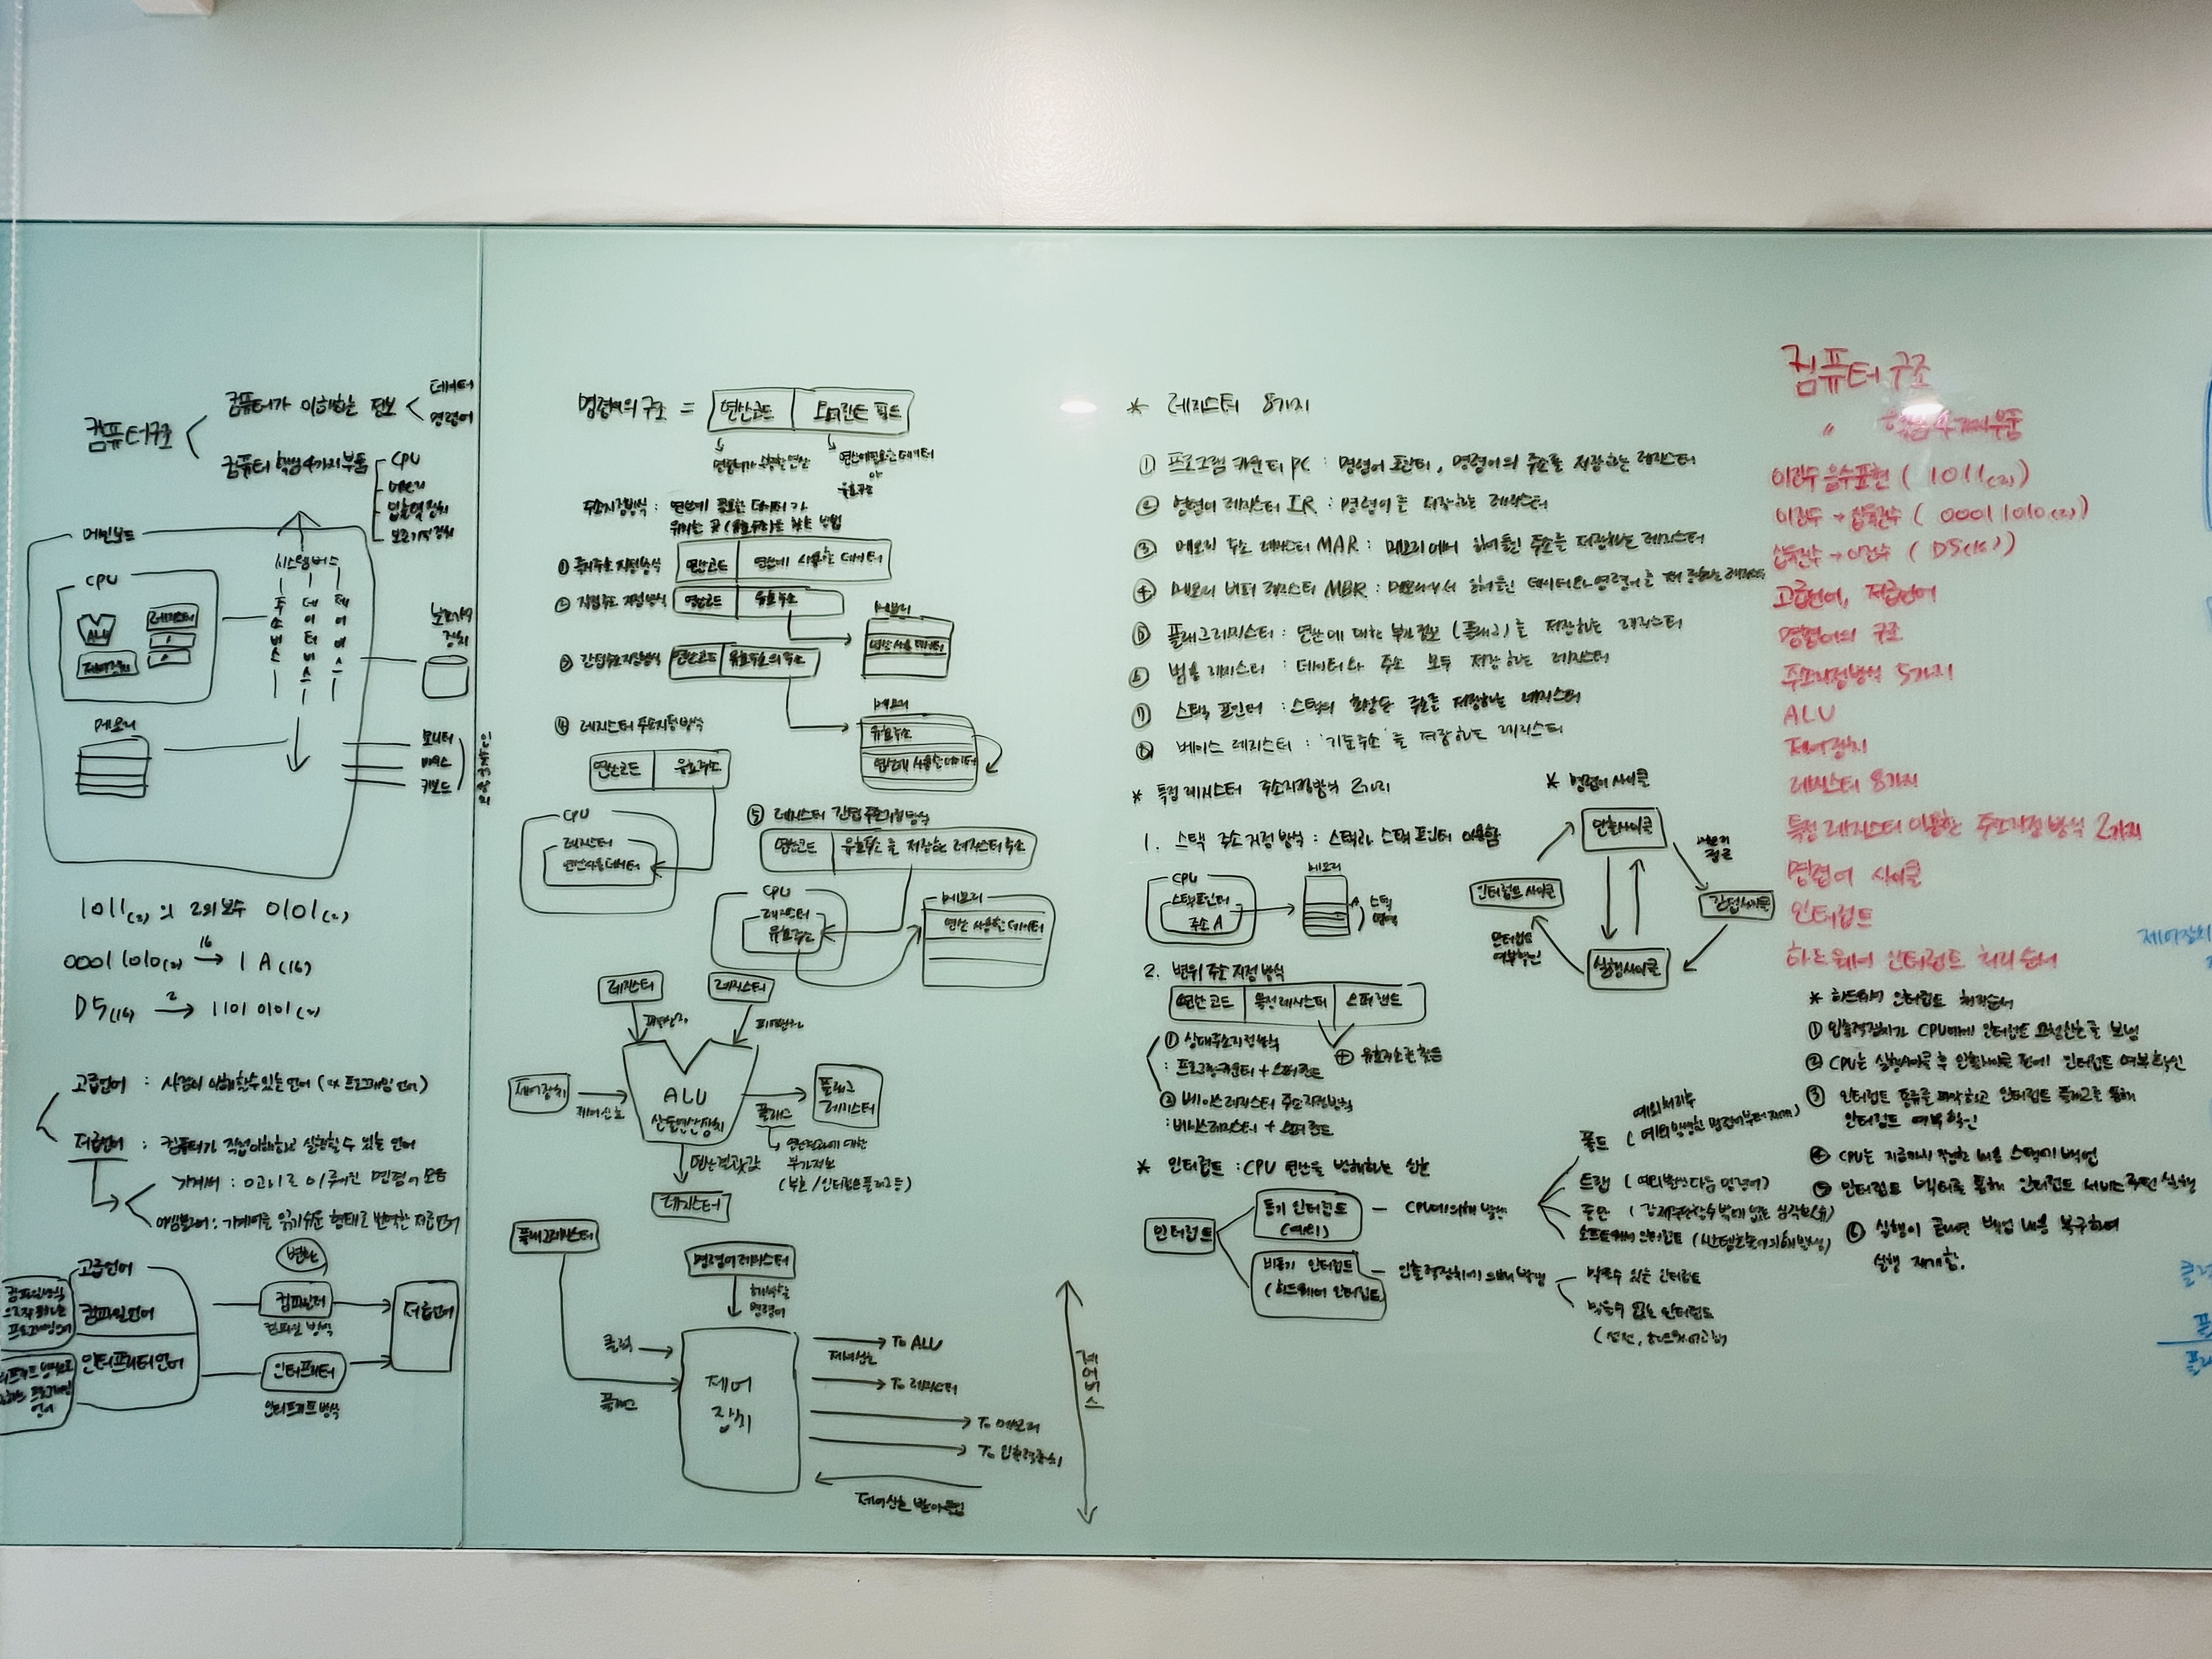 컴퓨터구조
컴퓨터가 이해하는 정보
데이터
명령어
컴퓨터 핵심 4가지 부품
CPU
메모리
입출력장치
보조기억장치
메인보드
CPU
ALU
레지스터
제어장치
시스템버스
주소버스
데이터버스
제어버스
보조기억
장치
메모리
모니터
마우스
키보드
입출력장치
1011(2)의 2의 보수 0101(2)
0001 1010(2) 16→ 1A(16)
D5(16) 2→ 1101 0101(2)
고급언어 : 사람이 이해할 수 있는 언어 (ex 프로그래밍 언어)
저급언어 : 컴퓨터가 직접 이해하고 실행할 수 있는 언어
기계어 : 0과 1로 이루어진 명령어 모음
어셈블리어 : 기계어를 읽기쉬운 형태로 번역한 저급언어
변환
고급언어
컴파일언어
인터프리터언어
컴파일러
컴파일 방식
인터프리터
인터프리트 방식
저급언어
명령어의 구조 = 연산코드 오퍼랜드 필드
명령어가 수행할 연산
연산에 필요한 데이터
or
유효주소
주소지정방식 : 연산에 필요한 데이터가
위치한 곳(유효주소)을 찾는 방법
① 즉시주소 지정방식 연산코드 연산에 사용할 데이터
② 직접주소 지정방식 연산코드 유효주소
메모리
연산 사용 데이터
③ 간접주소지정방식 연산코드 유효주소의 주소
메모리
유효주소
연산에 사용할 데이터
④ 레지스터 주소지정방식
연산코드 유효주소
CPU
레지스터
연산사용데이터
⑤ 레지스터 간접 주소지정방식
연산코드 유효주소를 저장하는 레지스터 주소
CPU
레지스터
유효주소
메모리
연산 사용할 데이터
레지스터
레지스터
피연산자
피연산자
제어장치
제어신호
ALU
산술연산장치
플래그
플래그
레지스터
연산결과에 대한
부가정보
(부호/인터럽트플래그 등)
연산결괏값
레지스터
플래그레지스터
명령어레지스터
해석할
명령어
클럭
플래그
제어
장치
제어신호
To ALU
To 레지스터
To 메모리
To 입출력장치
제어신호 받아들임
제어버스
* 레지스터 8가지
① 프로그램 카운터 PC : 명령어 포인터, 명령어의 주소를 저장하는 레지스터
② 명령어 레지스터 IR : 명령어를 저장하는 레지스터
③ 메모리 주소 레지스터 MAR : 메모리에서 읽어들인 주소를 저장하는 레지스터
④ 메모리 버퍼 레지스터 MBR : 메모리에서 읽어들인 데이터와 명령어를 저장하는 레지스터
⑤ 플래그레지스터 : 연산에 대한 부가정보 (플래그)를 저장하는 레지스터
⑥ 범용 레지스터 : 데이터와 주소 모두 저장하는 레지스터
⑦ 스택 포인터 : 스택의 최상단 주소를 저장하는 레지스터
⑧ 베이스 레지스터 : '기준주소'를 저장하는 레지스터
* 특정 레지스터 주소지정방식 2가지
1. 스택 주소 지정 방식 : 스택과 스택 포인터 이용함
CPU
스택포인터
주소 A
메모리
A
스택
영역
2. 변위 주소 지정 방식
연산코드 특정레지스터 오퍼랜드
유효주소를 찾음
① 상대주소지정방식
: 프로그램카운터 + 오퍼랜드
② 베이스레지스터 주소지정방식
: 베이스레지스터 + 오퍼랜드
* 명령어 사이클
인출사이클
메모리
접근
간접사이클
실행사이클
인터럽트
여부확인
인터럽트 사이클
* 인터럽트 : CPU 연산을 방해하는 신호
인터럽트
동기 인터럽트
(예외)
CPU에 의해 발생
폴트
예외처리후
(예외 발생한 명령어부터 재개)
트랩 (예외발생 다음 명령어)
중단 (강제중단할수밖에 없는 심각한 오류)
소프트웨어 인터럽트 (시스템호출에 의해 발생)
비동기 인터럽트
(하드웨어 인터럽트)
입출력장치에 의해 발생
막을수 있는 인터럽트
막을수 없는 인터럽트
(정전, 하드웨어고장)
컴퓨터 구조
〃 핵심 4가지부품
이진수 음수표현 ( 1011(2))
이진수 → 십육진수 ( 0001 1010(2))
십육진수 → 이진수 ( D5(16))
고급언어, 저급언어
명령어의 구조
주소지정방식 5가지
ALU
제어장치
레지스터 8가지
특정 레지스터 이용한 주소지정 방식 2가지
명령어 사이클
인터럽트
하드웨어 인터럽트 처리 순서
* 하드웨어 인터럽트 처리순서
① 입출력장치가 CPU에게 인터럽트 요청신호를 보냄
② CPU는 실행사이클 후 인출사이클 전에 인터럽트 여부확인
③ 인터럽트 종류를 파악하고 인터럽트 플래그를 통해
인터럽트 여부 확인
④ CPU는 지금까지 작업한 내용 스택에 백업
⑤ 인터럽트 벡터를 통해 인터럽트 서비스 루틴 실행
⑥ 실행이 끝나면 백업 내용 복구하여
실행 재개함.
제어장치